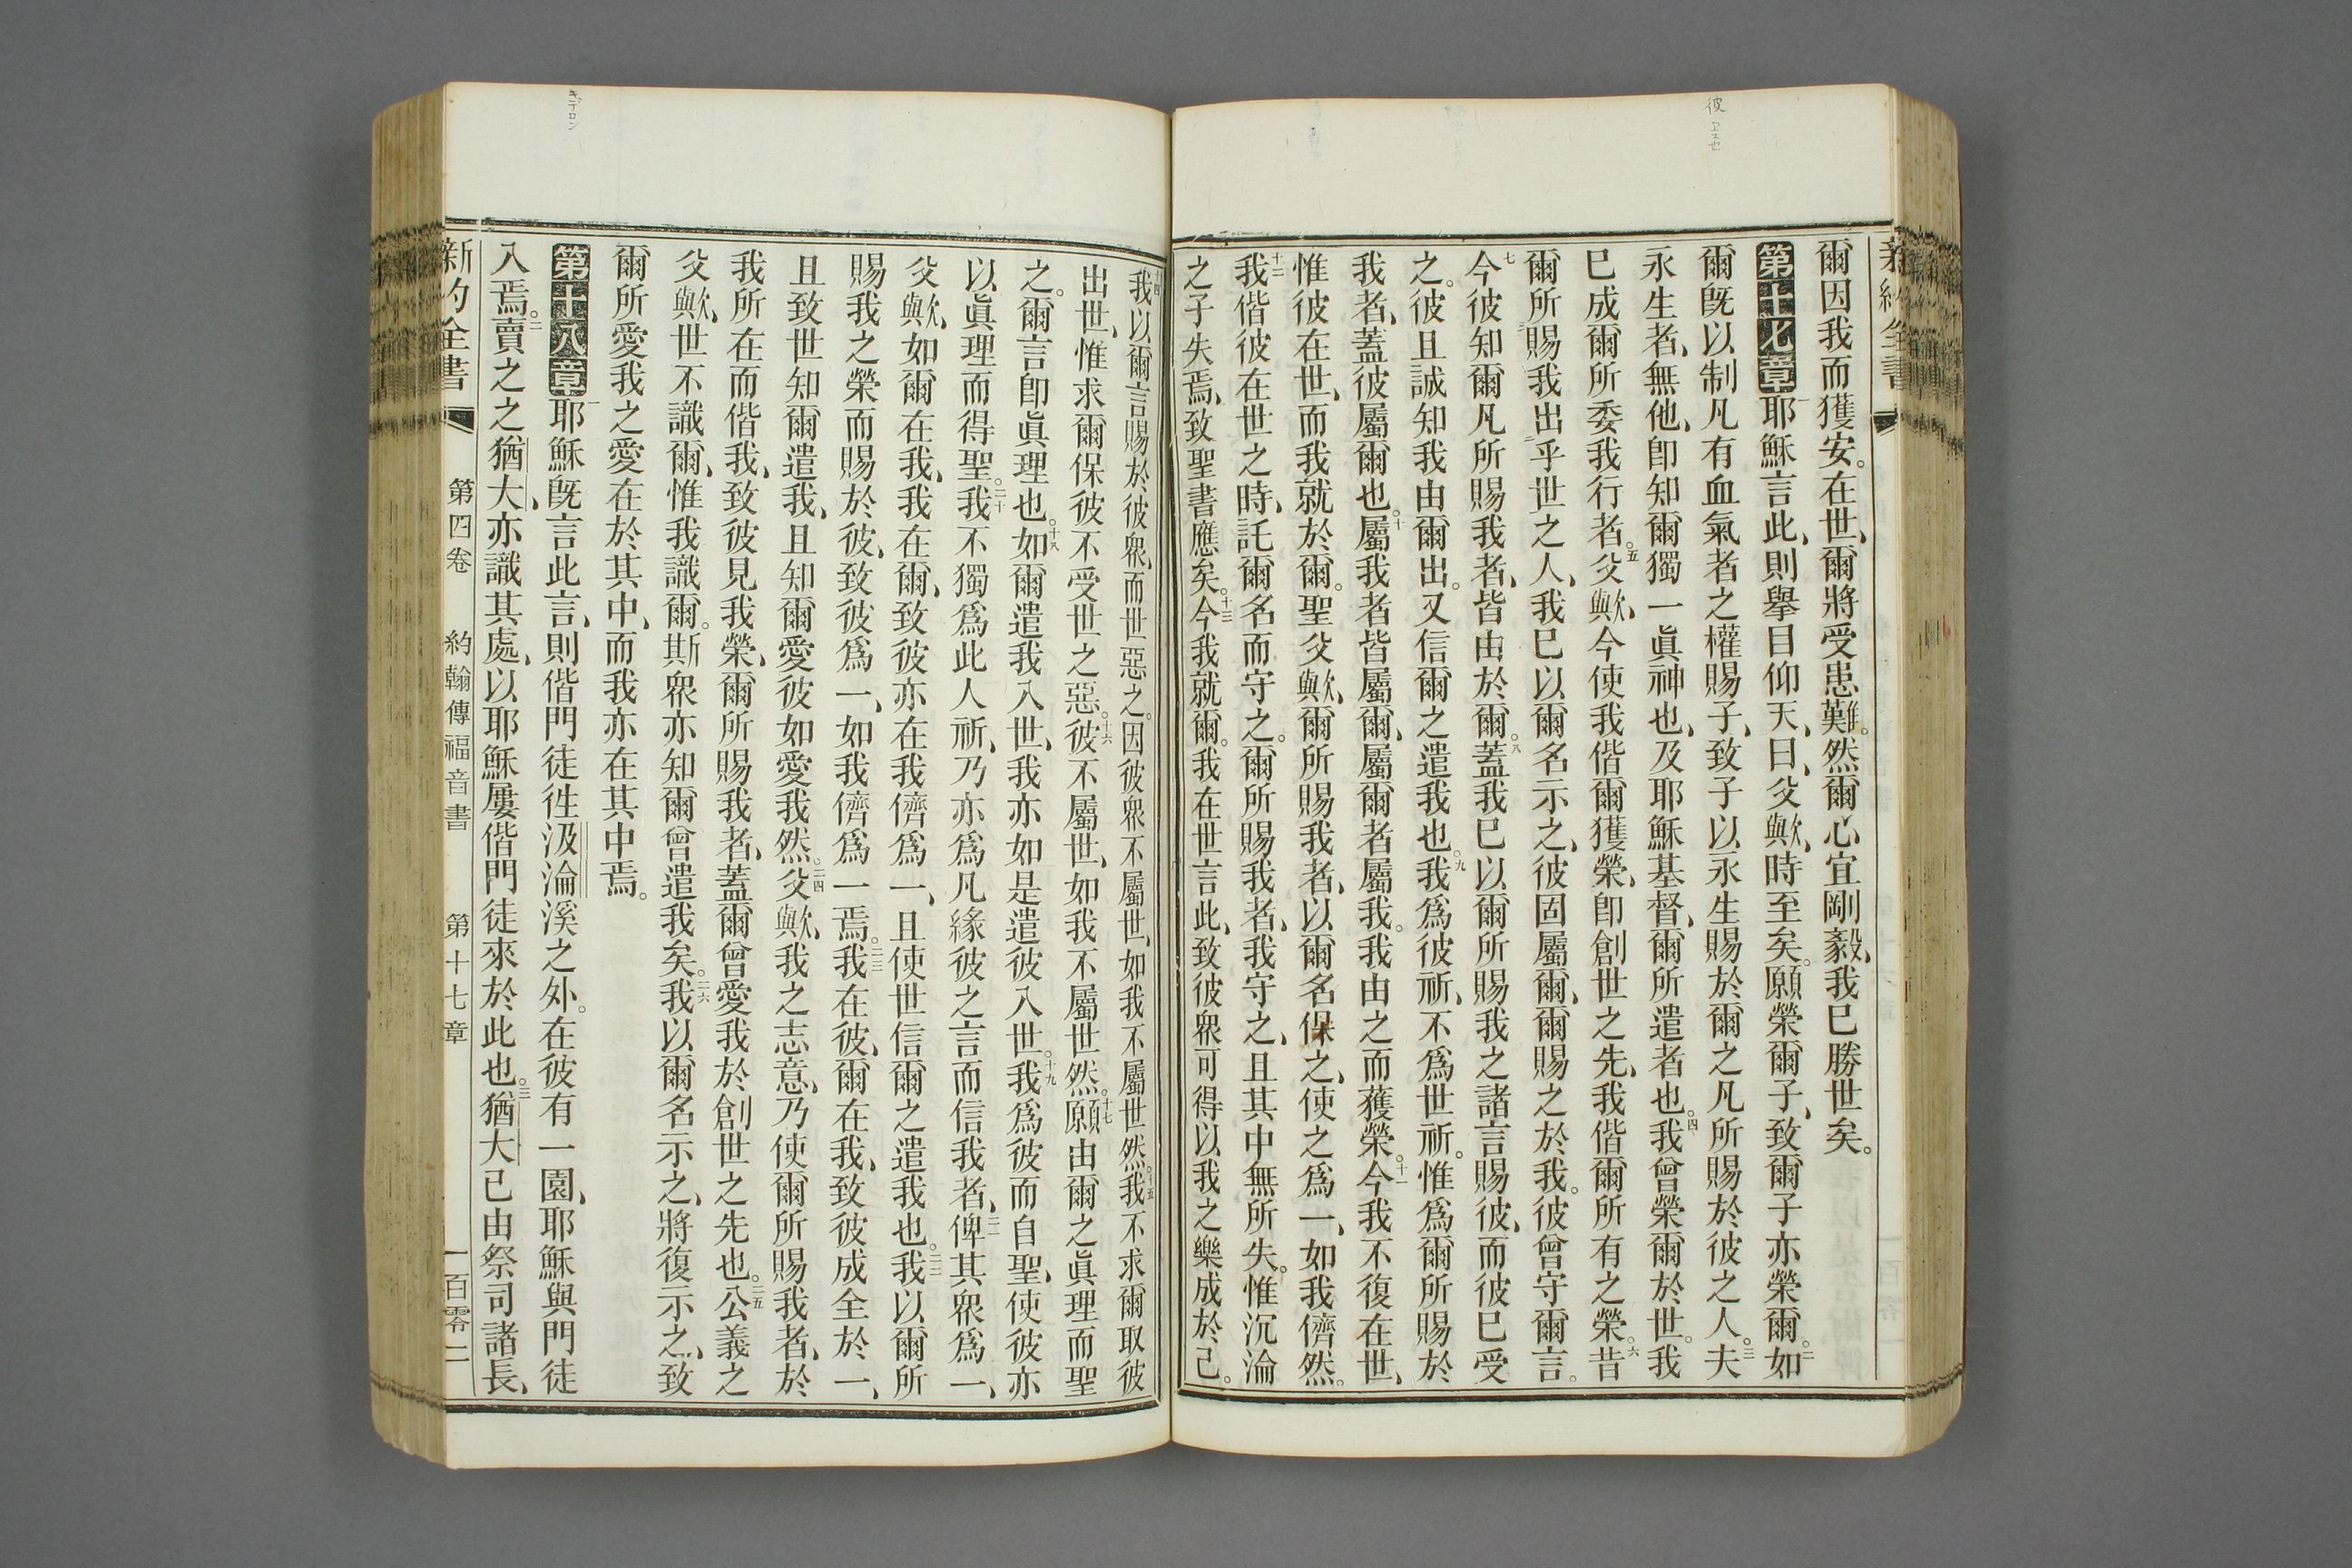 彼
ヱス也
爾因我而獲安。在世、爾將受患難。然爾心宜剛毅、我已勝世矣。
第十七章一耶穌言此、則擧目仰天、曰、父歟、時至矣。願榮爾子、致爾子亦榮爾。二如
爾旣以制凡有血氣者之權賜子、致子以永生賜於爾之凡所賜於彼之人。三夫
永生者、無他、卽知爾獨一眞神也、及耶穌基督、爾所遣者也。四我曾榮爾於世。我
已成爾所委我行者。五父歟、今使我偕爾獲榮、卽創世之先、我偕爾所有之榮。六昔
爾所賜我出乎世之人、我已以爾名示之、彼固屬爾、爾賜之於我。彼曾守爾言。
七今彼知爾凡所賜我者、皆由於爾。八蓋我已以爾所賜我之諸言賜彼、而彼已受
之。彼且誠知我由爾出。又信爾之遣我也。九我爲彼祈、不爲世祈。惟爲爾所賜於
我者、蓋彼屬爾也。十屬我者皆屬爾、屬爾者屬我。我由之而獲榮。十一今我不復在世、
惟彼在世、而我就於爾。聖父歟、爾所賜我者、以爾名保之、使之爲一、如我儕然。
十二我偕彼在世之時、託爾名而守之。爾所賜我者、我守之、且其中無所失。惟沉淪
之子失焉、致聖書應矣。十三今我就爾。我在世言此、致彼衆可得以我之樂成於己。
十四我以爾言賜於彼衆、而世惡之。因彼衆不屬世、如我不屬世然。十五我不求爾取彼
出世、惟求爾保彼不受世之惡。十六彼不屬世、如我不屬世然。十七願由爾之眞理而聖
之。爾言卽眞理也。十八如爾遣我入世、我亦如是遣彼入世。十九我爲彼而自聖、使彼亦
以眞理而得聖。二十我不獨爲此人祈、乃亦爲凡緣彼之言而信我者、二一俾其衆爲一、
父歟、如爾在我、我在爾、致彼亦在我儕爲一、且使世信爾之遣我也。二二我以爾所
賜我之榮而賜於彼、致彼爲一、如我儕爲一焉。二三我在彼、爾在我、致彼成全於一、
且致世知爾遣我、且知爾愛彼如愛我然。二四父歟、我之志意、乃使爾所賜我者、於
我所在而偕我、致彼見我榮、爾所賜我者、蓋爾曾愛我於創世之先也。二五公義之
父歟、世不識爾、惟我識爾。斯衆亦知爾曾遣我矣。二六我以爾名示之、將復示之、致
爾所愛我之愛在於其中、而我亦在其中焉。
第十八章一耶穌旣言此言、則偕門徒徃汲淪溪之外。在彼有一園、耶穌與門徒
入焉。二賣之之猶大、亦識其處、以耶穌屢偕門徒來於此也。三猶大已由祭司諸長、
キデロン
新約全書 第四卷 約翰傳福音書 第十七章 一百零二